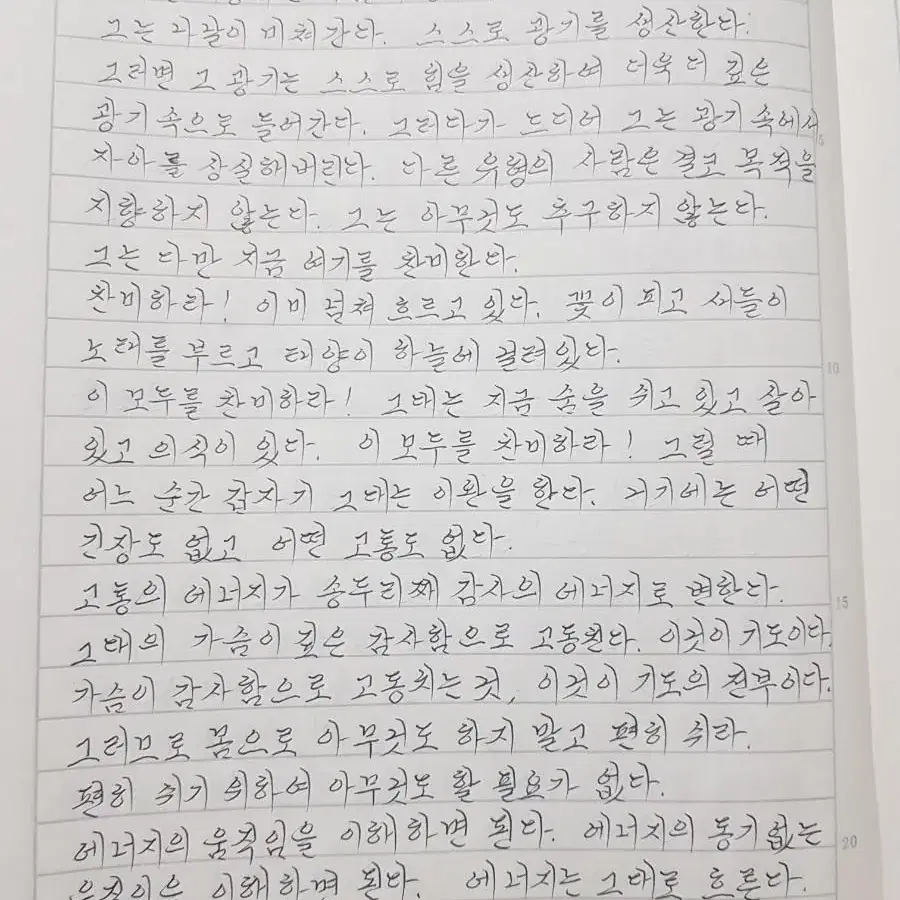 그는 나날이 미쳐간다. 스스로 광기를 생산한다.
그러면 그 광기는 스스로 힘을 생산하여 더욱 더 깊은
광기 속으로 들어간다. 그러다가 드디어 그는 광기 속에서
자아를 상실해버린다. 다른 유형의 사람은 결코 목적을
지향하지 않는다. 그는 아무것도 추구하지 않는다.
그는 다만 지금 여기를 찬미한다.
찬미하라! 이미 넘쳐 흐르고 있다. 꽃이 피고 새들이
노래를 부르고 태양이 하늘에 걸려있다.
이 모두를 찬미하라! 그대는 지금 숨을 쉬고 있고 살아
있고 의식이 있다. 이 모두를 찬미하라! 그럴 때
어느 순간 갑자기 그대는 이완을 한다. 거기에는 어떤
긴장도 없고 어떤 고통도 없다.
고통의 에너지가 송두리째 감사의 에너지로 변한다.
그대의 가슴이 깊은 감사함으로 고동친다. 이것이 기도이다.
가슴이 감사함으로 고동치는 것, 이것이 기도의 전부이다.
그러므로 몸으로 아무것도 하지 말고 편히 쉬라.
편히 쉬기 위하여 아무것도 할 필요가 없다.
에너지의 움직임을 이해하면 된다. 에너지의 동기없는
움직임을 이해하면 된다. 에너지는 그대로 흐른다.
5
10
15
20